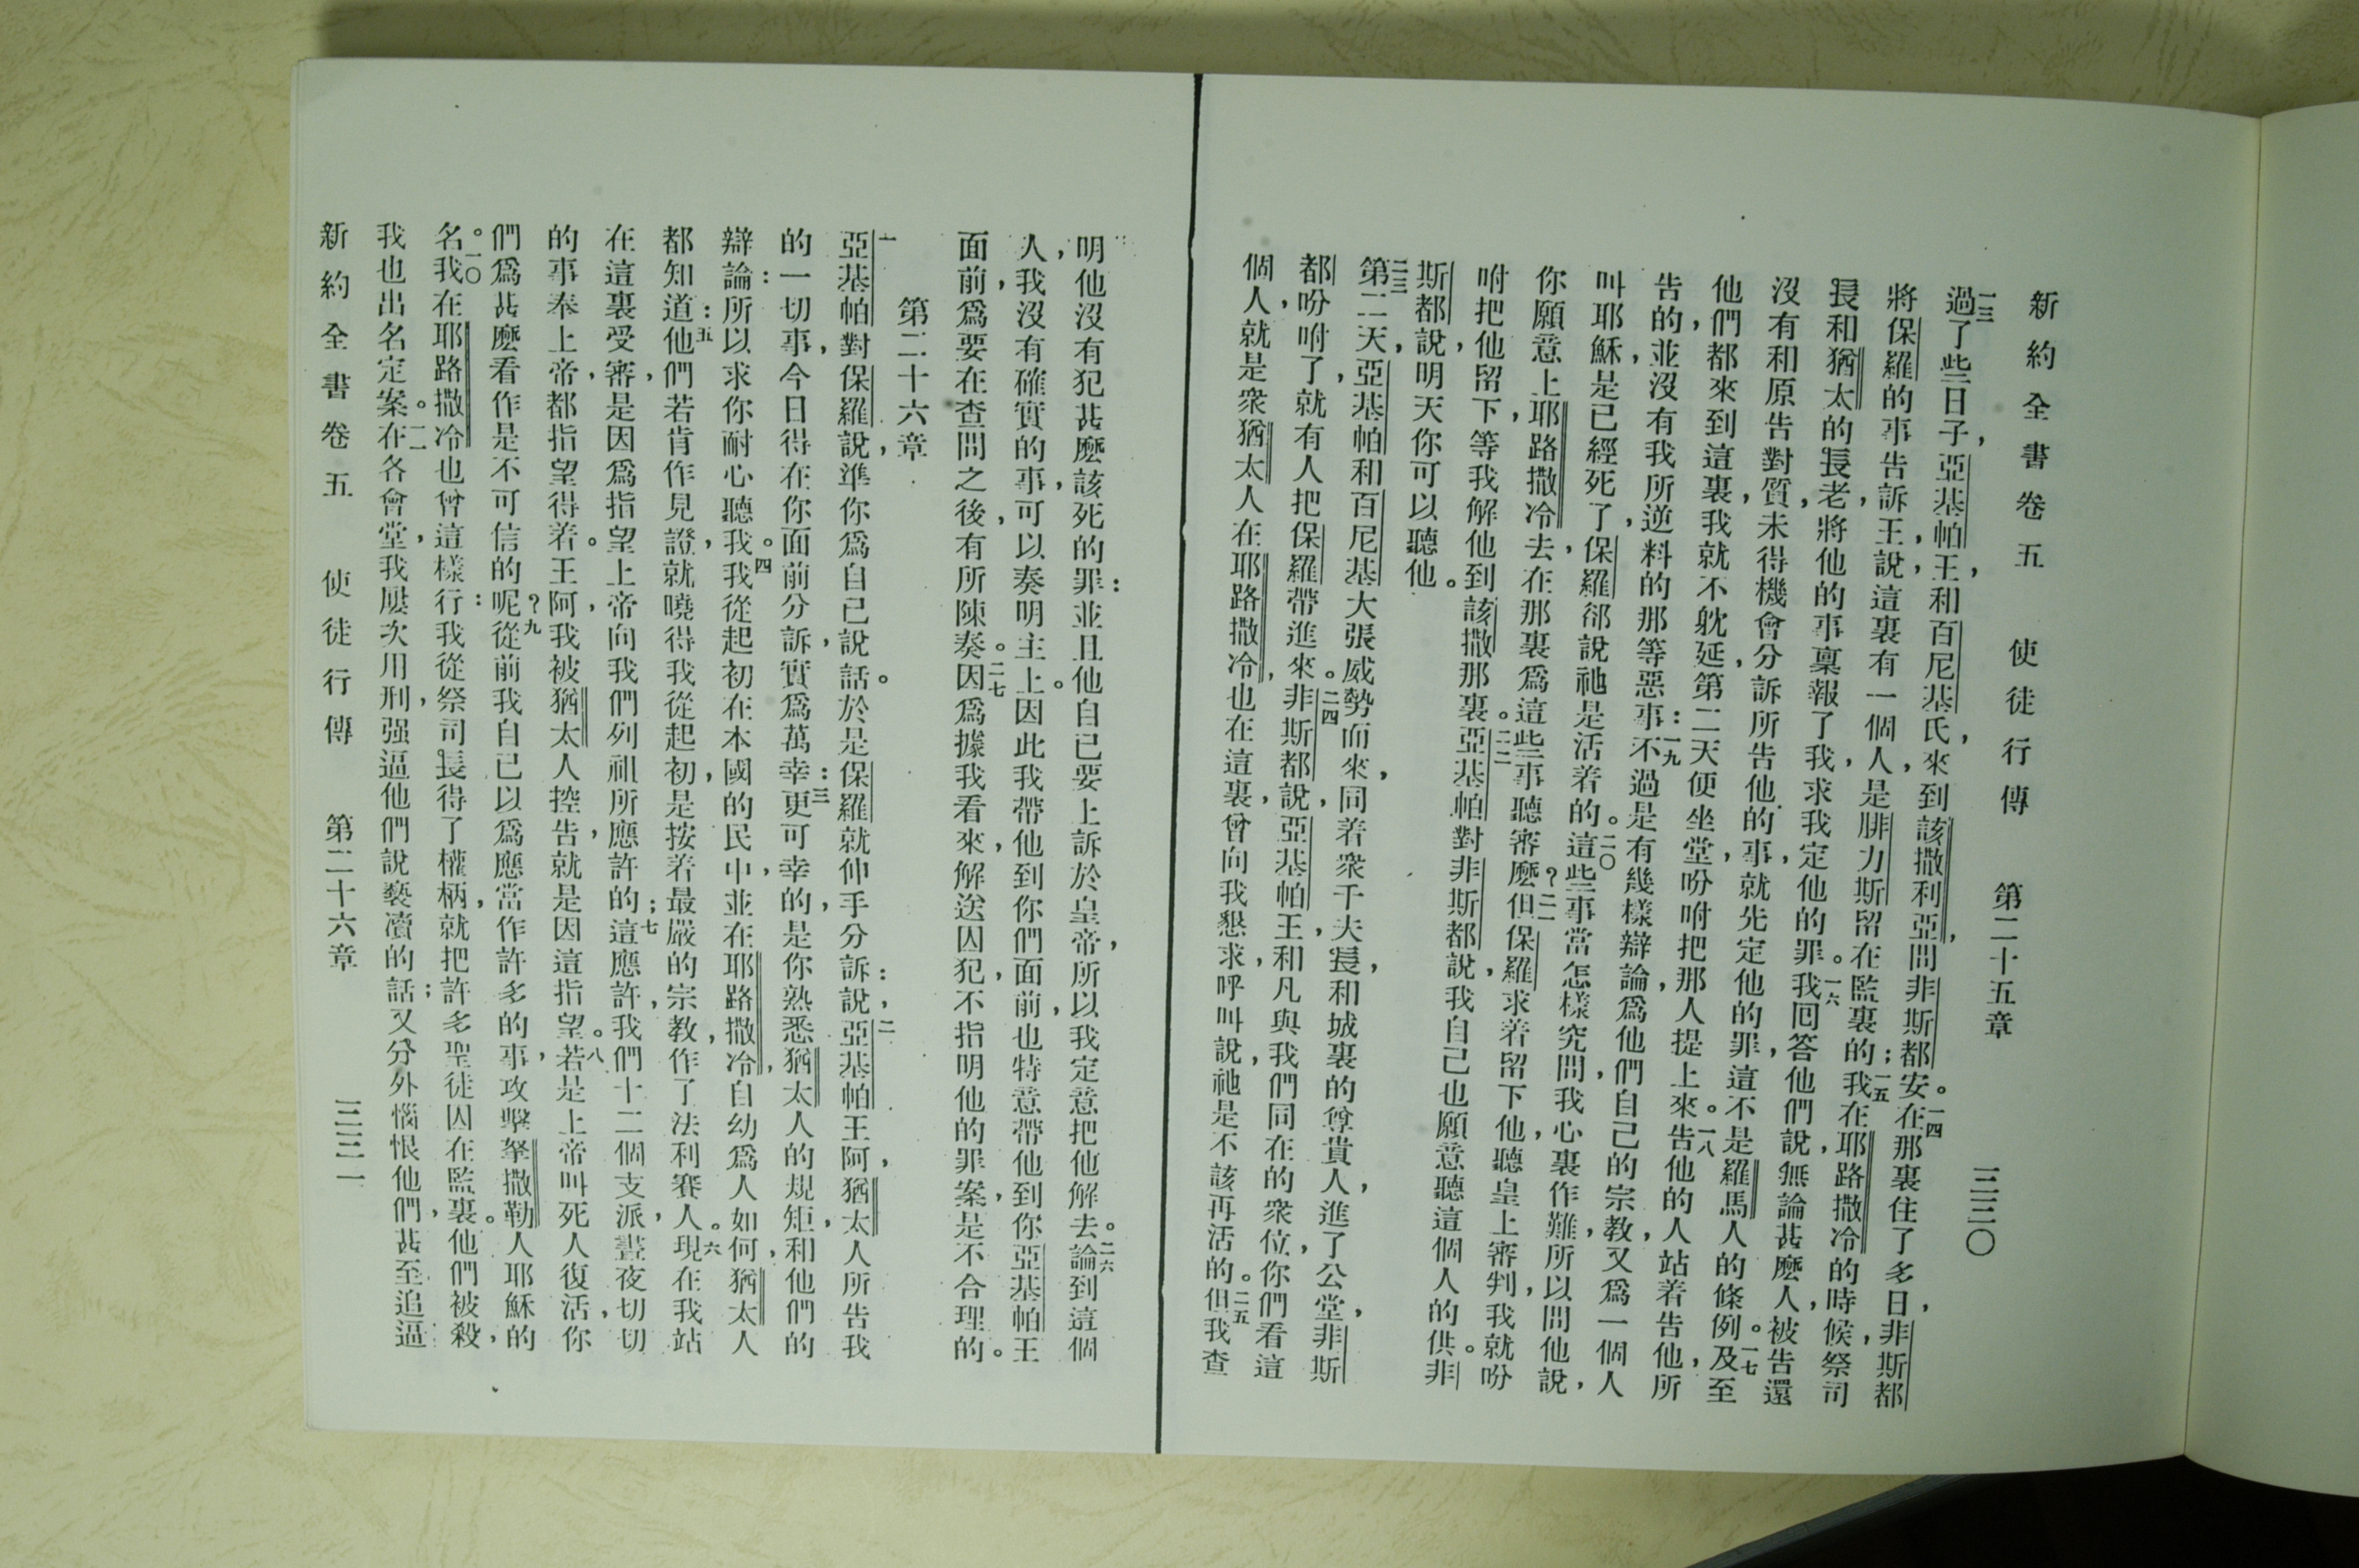 新約全書卷五 使徒行傳 第二十五章 三三〇
一三過了些日子,亞基帕王,和百尼基氏,來到該撒利亞,問非斯都安。一四在那裏住了多日,非斯都
將保羅的事告訴王,說,這裏有一個人,是腓力斯留在監裏的;一五我在耶路撒冷的時候,祭司
長和猶太的長老,將他的事稟報了我,求我定他的罪。一六我囘答他們說,無論甚麼人,被告還
沒有和原告對質,未得機會分訴所告他的事,就先定他的罪,這不是羅馬人的條例。一七及至
他們都來到這裏,我就不躭延,第二天便坐堂,吩咐把那人提上來。一八告他的人站着告他,所
告的,並沒有我所逆料的那等惡事:一九不過是有幾樣辯論,爲他們自己的宗教,又爲一個人
叫耶穌,是已經死了,保羅郤說祂是活着的。二〇這些事當怎樣究問,我心裏作難,所以問他說,
你願意上耶路撒冷去,在那裏爲這些事聽審麼?二一但保羅求着留下他,聽皇上審判,我就吩
咐把他留下,等我解他到該撒那裏。二二亞基帕對非斯都說,我自己也願意聽這個人的供。非
斯都說,明天你可以聽他。
二三第二天,亞基帕和百尼基大張威勢而來,同着衆千夫長,和城裏的尊貴人,進了公堂,非斯
都吩咐了,就有人把保羅帶進來。二四非斯都說,亞基帕王,和凡與我們同在的衆位,你們看這
個人,就是衆猶太人在耶路撒冷,也在這裏,曾向我懇求,呼叫說,祂是不該再活的。二五但我查
明他沒有犯甚麼該死的罪:並且他自己要上訴於皇帝,所以我定意把他解去。二六論到這個
人,我沒有確實的事,可以奏明主上。因此我帶他到你們面前,也特意帶他到你亞基帕王
面前,爲要在查問之後,有所陳奏。二七因爲據我看來,解送囚犯,不指明他的罪案,是不合理的。
第二十六章
一亞基帕對保羅說,準你爲自己說話。於是保羅就伸手分訴:說,二亞基帕王阿,猶太人所告我
的一切事,今日得在你面前分訴,實爲萬幸:三更可幸的,是你熟悉猶太人的規矩,和他們的
辯論:所以求你耐心聽我。四我從起初在本國的民中,並在耶路撒冷,自幼爲人如何,猶太人
都知道:五他們若肯作見證,就曉得我從起初,是按着最嚴的宗教,作了法利賽人。六現在我站
在這裏受審,是因爲指望上帝向我們列祖所應許的;七這應許,我們十二個支派,晝夜切切
的事奉上帝,都指望得着。王阿,我被猶太人控告,就是因這指望。八若是上帝叫死人復活,你
們爲甚麼看作是不可信的呢?九從前我自己以爲應當作許多的事,攻擊拏撒勒人耶穌的
名。一〇我在耶路撒冷也曾這樣行:我從祭司長得了權柄,就把許多聖徒囚在監裏。他們被殺,
我也出名定案。一一在各會堂,我屢次用刑,强逼他們說褻瀆的話;又分外惱恨他們,甚至追逼
新約全書卷五 使徒行傳 第二十六章 三三一